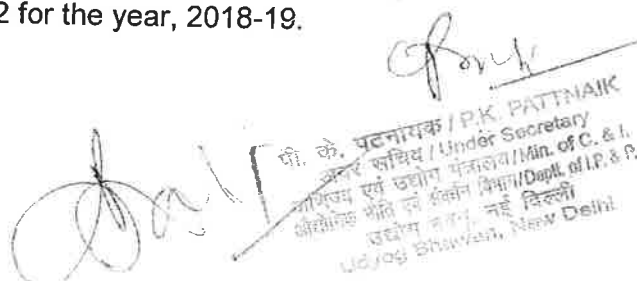 2 for the year, 2018-19.
पी. के. पटनायक / P.K. PATTNAIK
अवर सचिव / Under Secretary
वाणिज्य एवं उद्योग मंत्रालय/Min. of C. & I.
औद्योगिक नीति एवं संवर्धन विभाग/Deptt. of I.P. & P.
उद्योग भवन, नई दिल्ली
Udyog Bhawan, New Delhi